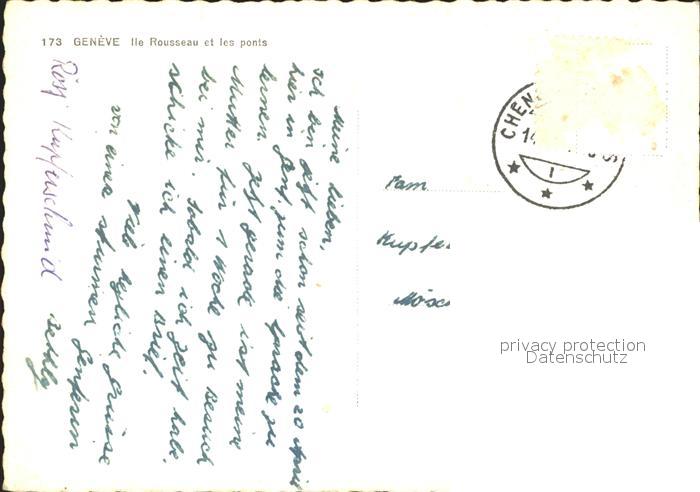 173 GENÈVE Ile Rousseau et les ponts
Meine Lieben,
Ich bin jetzt schon seit dem 20 April
hier in Genf, um die Sprache zu
lernen. Jetzt gerade ist meine
Mutter für 1 Woche zu Besuch
bei mir. Sobald ich Zeit habe,
schicke ich einen Brief.
Viele herzliche Grüsse
von einer Genferin
Bethly
Rösy Kupferschmid
CHEN
S
1
Fam
Kupfe
Mösc
privacy protection
Datenschutz